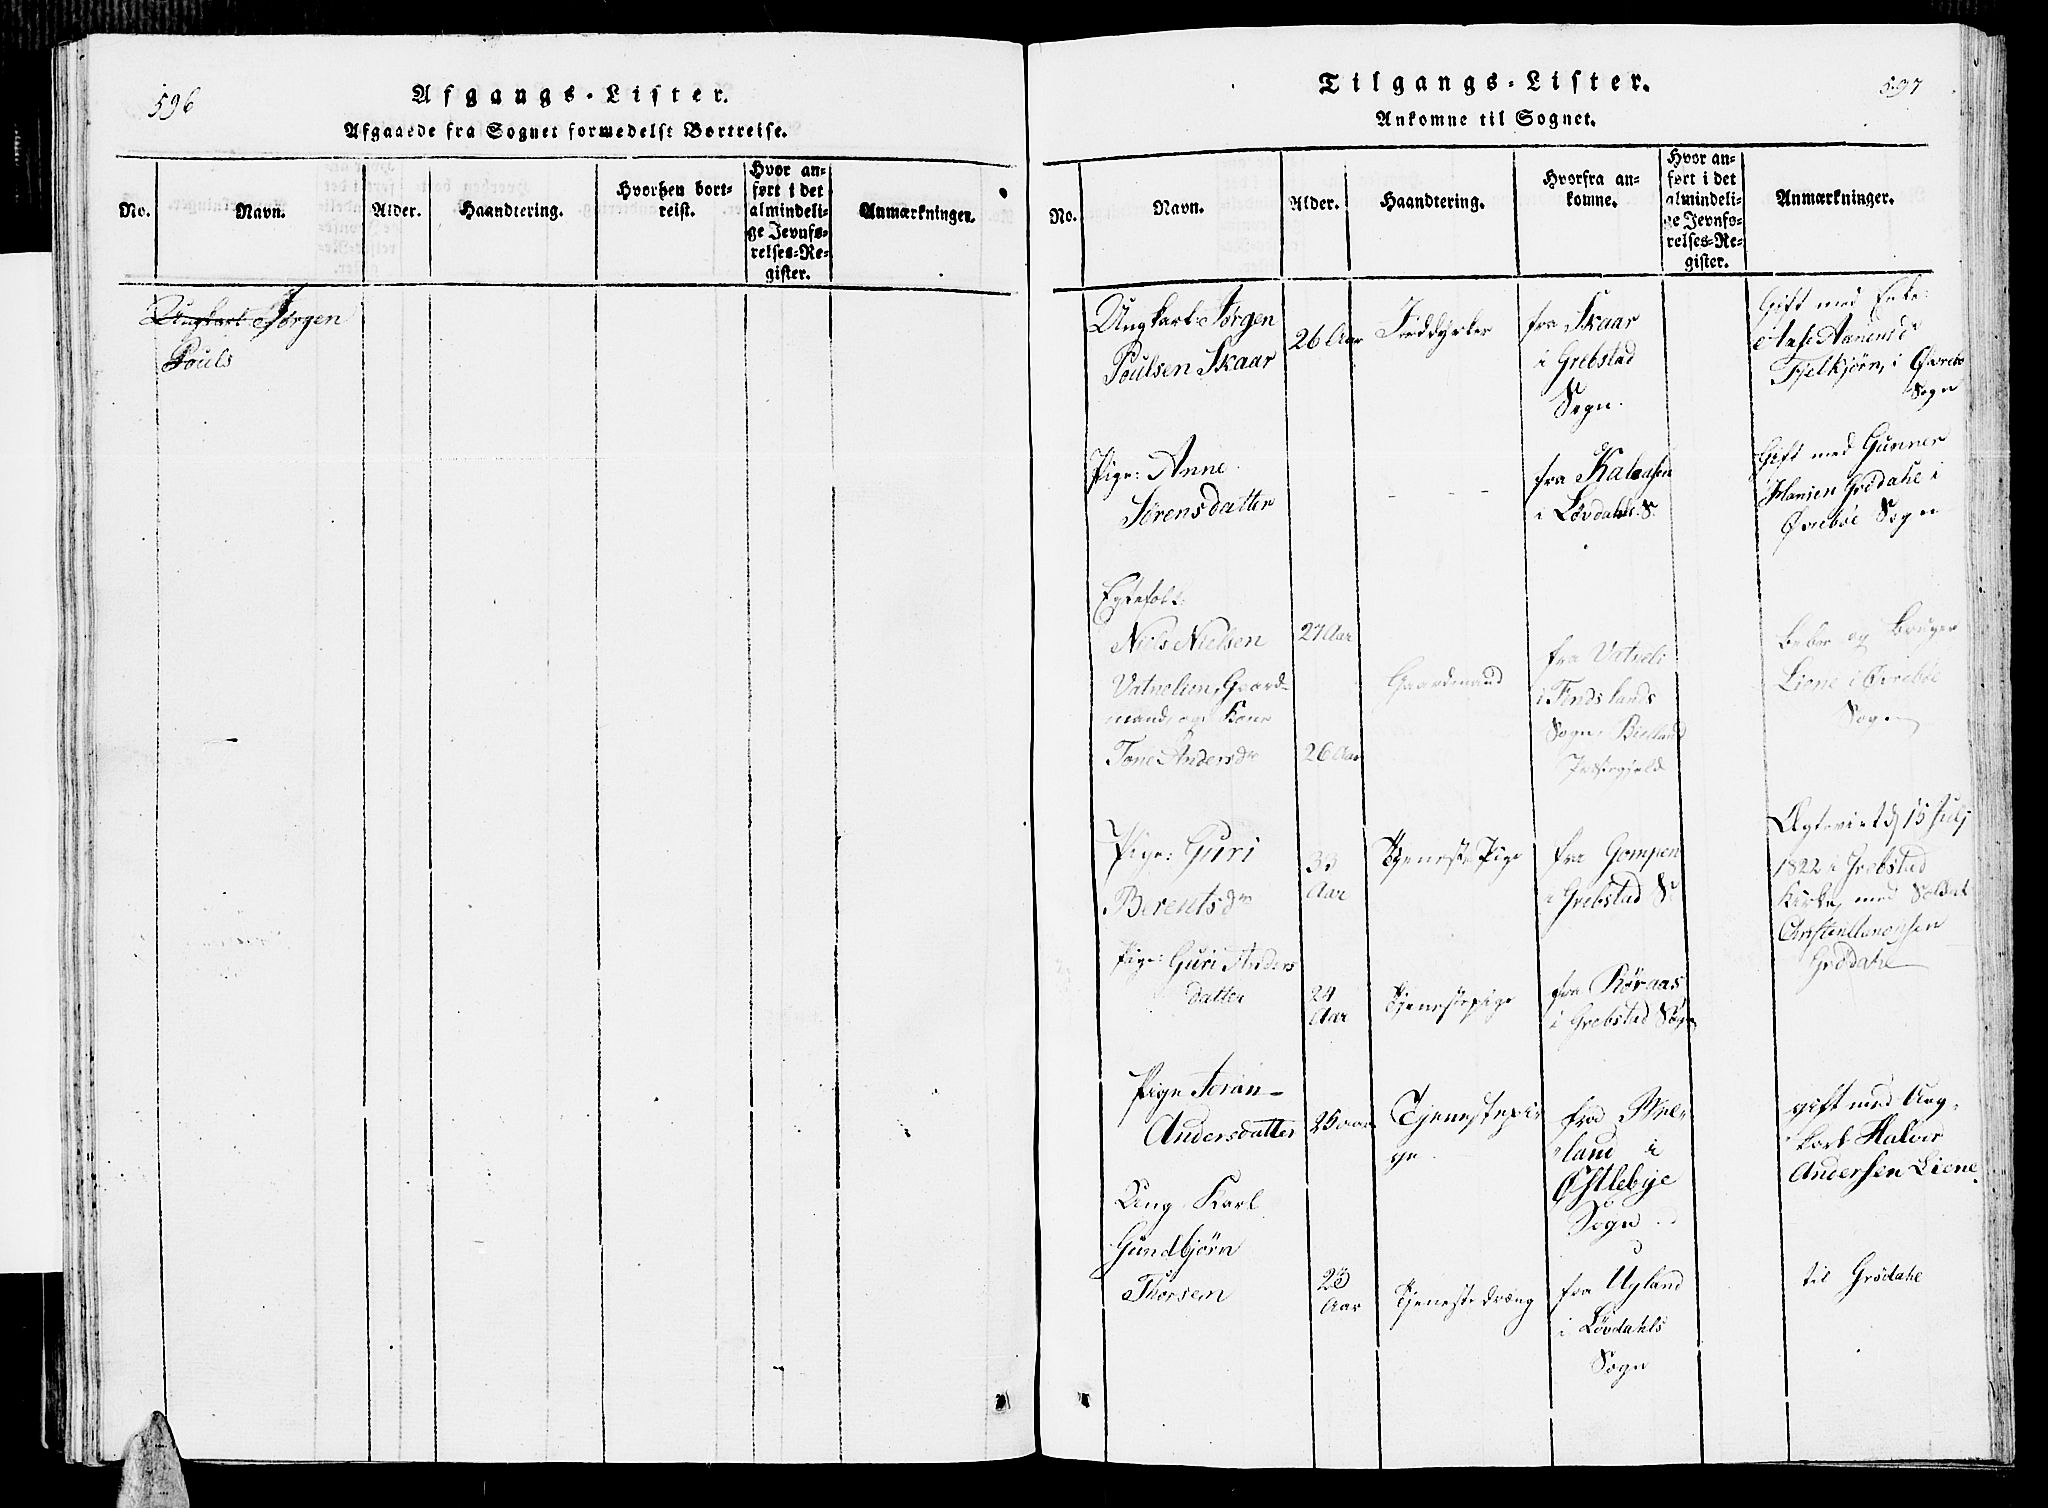 596
Afgangs-Lister.
Afgaaede fra Sognet formedelst Bortreise.
No.
Navn.
Alder.
Haandtering.
Hvorhen bort-
reist.
Hvor an-
ført i det
almindeli-
ge Jevnfø-
relses-Re-
gister.
Anmærkninger.
Ungkarl Jørgen
Pouls
Tilgangs-Lister.
597
Ankomne til Sognet.
No.
Navn.
Alder.
Haandtering.
Hvorfra an-
komne.
Hvor an-
ført i det
almindeli-
ge Jevnfø-
relses-Re-
gister.
Anmærkninger.
Ungkarl Jørgen
Poulsen Skaar
26 Aar
Jorddyrker
fra Skaar
i Grebstad
Sogn.
Gift med Enke:
Aanensdr
i Øvrebø
Sogn
Pige: Anne
Sørensdatter
fra
i Løvdahls S.
Gift med Gunner
Hansen Grødahl i
Øvrebøe Sogn
Egtefolk
Niels Nielsen
Vatnelien, Gaard-
mand, og Kone
Tone Andersdr
27 Aar
26 Aar
Gaardmand
fra Vatneli
i Findslands
Sogn, Bielland
Præstegjeld
Beboer og Bruger
Liene i Øvrebøe
Sogn
Pige: Guri
Berentsdr
33
Aar
Tjeneste Pige
fra Gompen
i Grebstad S.
Ægteviet d. 15 Julj
1822 i Grebstad
Kirke, med Soldat
Grødahl
Pige: Guri Anders
datter
24
Aar
Tjenestepige
fra Røraas
i Grebstad Sogn
Pige Joran
Andersdatter
25 aar
Tjenestepi
ge
fra
land i
Østlebye
Sogn
gift med Ung-
karl Halvor
Andersen Liene.
Ung Karl
Gundbjørn
Thorsem
23
Aar
Tjenestedræng
fra Uyland
i Løvdahls
Sogn
til Grødahl